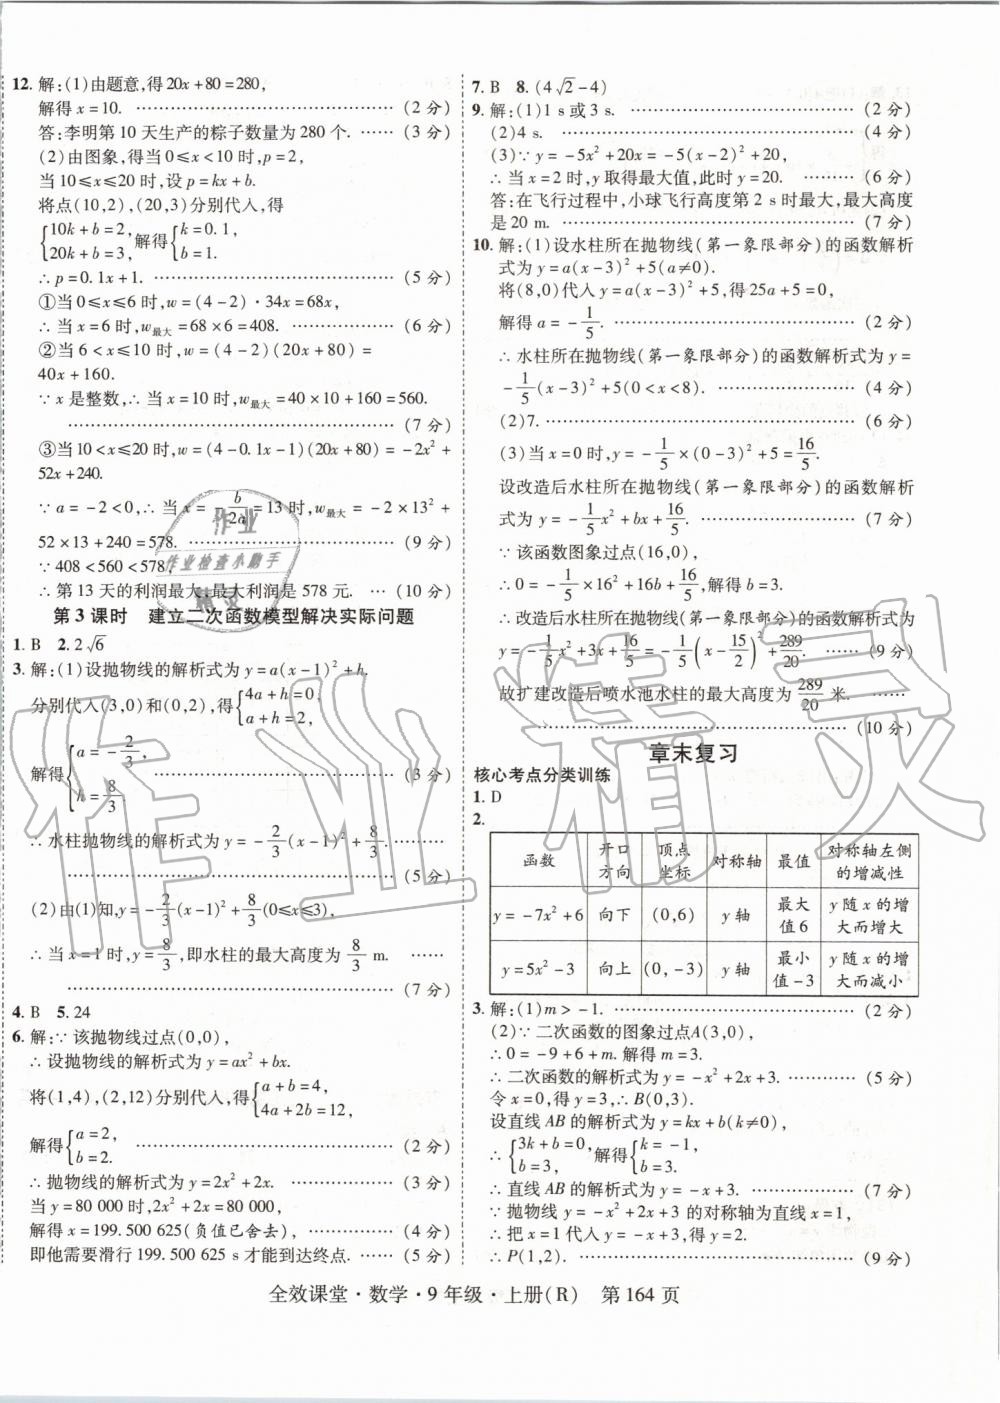 12. 解:(1)由题意,得20x+80=280,
解得x=10. ……………………………… (2分)
答:李明第10天生产的粽子数量为280个. …… (3分)
(2)由图象,得当0≤x<10时,p=2,
当10≤x≤20时,设p=kx+b.
将点(10,2),(20,3)分别代入,得
{10k+b=2, 20k+3=b, 解得{k=0.1, b=1.
∴p=0.1x+1. ……………………………… (5分)
①当0≤x≤6时,w=(4-2)·34x=68x,
∴当x=6时,w最大=68×6=408. ………… (6分)
②当6<x≤10时,w=(4-2)(20x+80)=
40x+160.
∵x是整数,∴当x=10时,w最大=40×10+160=560.
……………………………… (7分)
③当10<x≤20时,w=(4-0.1x-1)(20x+80)=-2x²+
52x+240.
∵a=-2<0,∴当x=-b/2a=13时,w最大=-2×13²+
52×13+240=578. ……………………… (9分)
∵408<560<578,
∴第13天的利润最大,最大利润是578元. … (10分)
第3课时 建立二次函数模型解决实际问题
1. B 2. 2√6
3. 解:(1)设抛物线的解析式为y=a(x-1)²+h.
分别代入(3,0)和(0,2),得{4a+h=0, a+h=2,
解得{a=-2/3, h=8/3. ……………………… (3分)
∴水柱抛物线的解析式为y=-2/3(x-1)²+8/3. ………
……………………………… (5分)
(2)由(1)知,y=-2/3(x-1)²+8/3(0≤x≤3),
∴当x=1时,y=8/3,即水柱的最大高度为8/3 m. ……
……………………………… (7分)
4. B 5. 24
6. 解:∵该抛物线过点(0,0),
∴设抛物线的解析式为y=ax²+bx.
将(1,4),(2,12)分别代入,得{a+b=4, 4a+2b=12,
解得{a=2, b=2. ……………………………… (2分)
∴抛物线的解析式为y=2x²+2x. ………… (3分)
当y=80 000时,2x²+2x=80 000,
解得x=199.500 625(负值已舍去), ……… (4分)
即他需要滑行199.500 625 s才能到达终点. … (5分)
7. B 8. (4√2-4)
9. 解:(1)1 s或3 s. ……………………… (2分)
(2)4 s. ……………………………… (4分)
(3)∵y=-5x²+20x=-5(x-2)²+20,
∴当x=2时,y取得最大值,此时y=20. ……… (6分)
答:在飞行过程中,小球飞行高度第2 s时最大,最大高度
是20 m. ……………………………… (7分)
10. 解:(1)设水柱所在抛物线(第一象限部分)的函数解析
式为y=a(x-3)²+5(a≠0).
将(8,0)代入y=a(x-3)²+5,得25a+5=0,
解得a=-1/5. ……………………………… (2分)
∴水柱所在抛物线(第一象限部分)的函数解析式为y=
-1/5(x-3)²+5(0<x<8). ……………… (4分)
(2)7. ……………………………… (6分)
(3)当x=0时,y=-1/5×(0-3)²+5=16/5.
设改造后水柱所在抛物线(第一象限部分)的函数解析
式为y=-1/5x²+bx+16/5. ………………… (7分)
∵该函数图象过点(16,0),
∴0=-1/5×16²+16b+16/5,解得b=3.
∴改造后水柱所在抛物线(第一象限部分)的函数解析式为
y=-1/5x²+3x+16/5=-1/5(x-15/2)²+289/20. …… (9分)
故扩建改造后喷水池水柱的最大高度为289/20米. ……
……………………………… (10分)
章末复习
核心考点分类训练
1. D
2.
函数 开口方向 顶点坐标 对称轴 最值 对称轴左侧的增减性
y=-7x²+6 向下 (0,6) y轴 最大值6 y随x的增大而增大
y=5x²-3 向上 (0,-3) y轴 最小值-3 y随x的增大而减小
3. 解:(1)m>-1. ……………………………… (2分)
(2)∵二次函数的图象过点A(3,0),
∴0=-9+6+m. 解得m=3.
∴二次函数的解析式为y=-x²+2x+3. ………… (5分)
令x=0,得y=3,∴B(0,3).
设直线AB的解析式为y=kx+b(k≠0),
∴{3k+b=0, b=3, 解得{k=-1, b=3.
∴直线AB的解析式为y=-x+3. …………… (7分)
∵抛物线y=-x²+2x+3的对称轴为直线x=1,
∴把x=1代入y=-x+3,得y=2.
∴P(1,2). ……………………………… (9分)
全效课堂·数学·9年级·上册(R) 第164页
作业
作业检查小助手
精灵
作业精灵